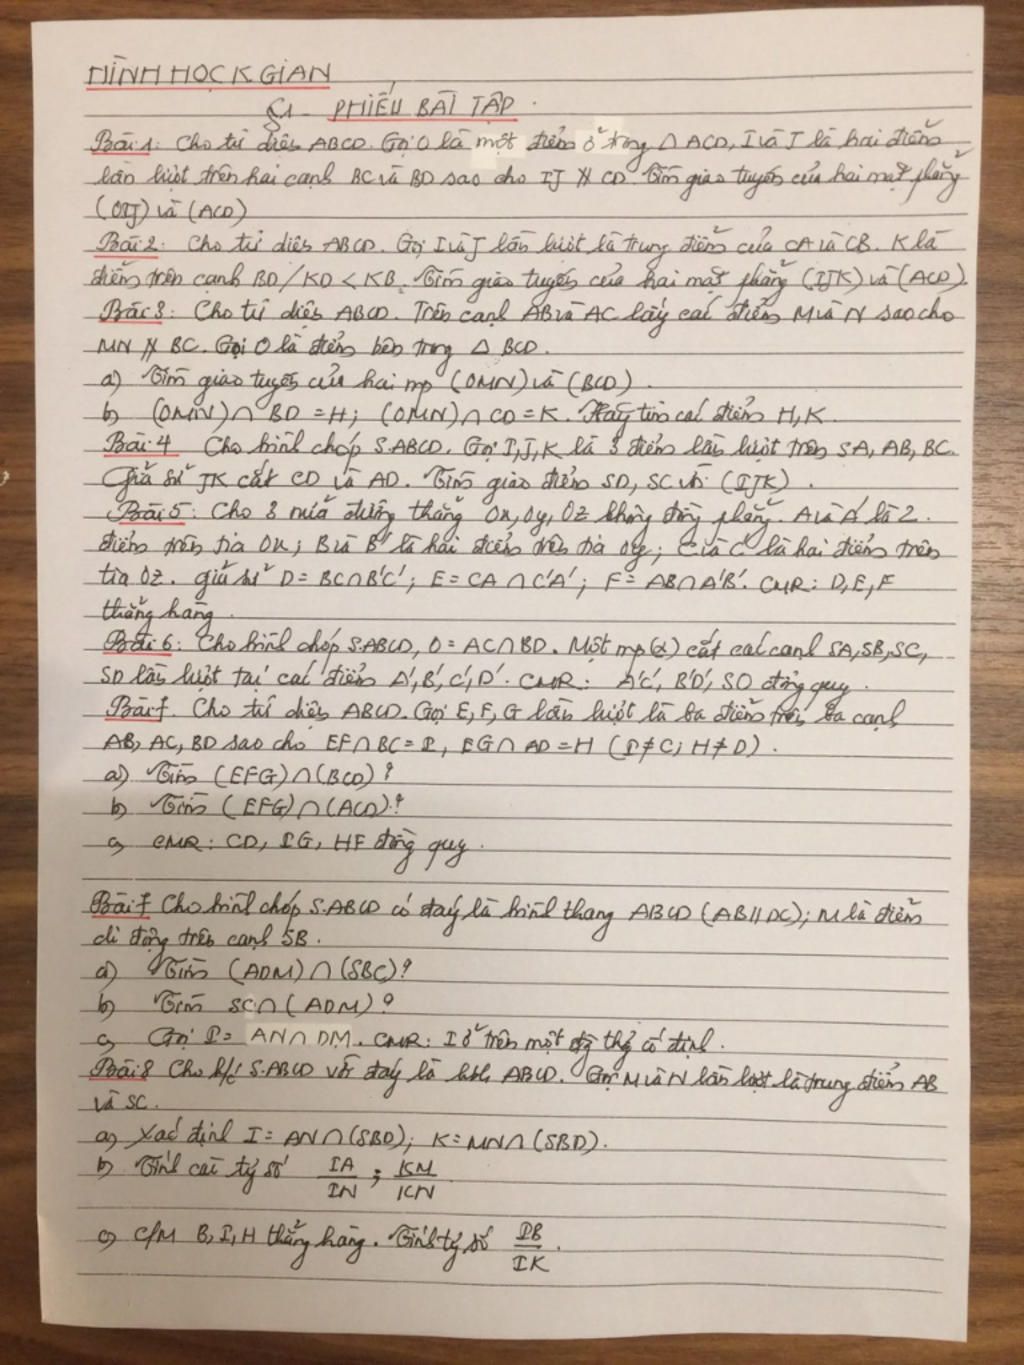 HÌNH HỌC K GIAN
§1 PHIẾU BÀI TẬP.
Bài 1: Cho tứ diện ABCD. Gọi O là một điểm ở trong Δ ACD, I và J là hai điểm
lần lượt trên hai cạnh BC và BD sao cho IJ ∦ CD. Tìm giao tuyến của hai mặt phẳng
(OIJ) và (ACD)
Bài 2: Cho tứ diện ABCD. Gọi I và J lần lượt là trung điểm của CA và CB. K là
điểm trên cạnh BD / KD < KB. Tìm giao tuyến của hai mặt phẳng (IJK) và (ACD).
Bài 3: Cho tứ diện ABCD. Trên cạnh AB và AC lấy các điểm M và N sao cho
MN ∦ BC. Gọi O là điểm bên trong Δ BCD.
a) Tìm giao tuyến của hai mp (OMN) và (BCD).
b) (OMN) ∩ BD = H; (OMN) ∩ CD = K. Hãy tìm các điểm H, K.
Bài 4 Cho hình chóp S.ABCD. Gọi I, J, K là 3 điểm lần lượt trên SA, AB, BC.
Giả sử JK cắt CD và AD. Tìm giao điểm SD, SC với (IJK).
Bài 5: Cho 3 nửa đường thẳng Ox, Oy, Oz không đồng phẳng. A và A' là 2
điểm trên tia Ox; B và B' là hai điểm trên tia Oy; C và C' là hai điểm trên
tia Oz. giả sử D = BC ∩ B'C'; E = CA ∩ C'A'; F = AB ∩ A'B'. CMR: D, E, F
thẳng hàng.
Bài 6: Cho hình chóp S.ABCD, O = AC ∩ BD. Một mp (α) cắt các cạnh SA, SB, SC,
SD lần lượt tại các điểm A', B', C', D'. CMR: A'C', B'D', SO đồng quy.
Bài 7. Cho tứ diện ABCD. Gọi E, F, G lần lượt là ba điểm trên ba cạnh
AB, AC, BD sao cho EF ∩ BC = I, EG ∩ AD = H (I ≠ C; H ≠ D).
a) Tìm (EFG) ∩ (BCD)?
b) Tìm (EFG) ∩ (ACD)?
c) CMR: CD, IG, HF đồng quy.
Bài 7 Cho hình chóp S.ABCD có đáy là hình thang ABCD (AB // DC); M là điểm
di động trên cạnh SB.
a) Tìm (ADM) ∩ (SBC)?
b) Tìm SC ∩ (ADM)?
c) Gọi I = AN ∩ DM. CMR: I ở trên một đg thg cố định.
Bài 8 Cho h/c S.ABCD với đáy là hbh ABCD. Gọi M và N lần lượt là trung điểm AB
và SC.
a) Xác định I = AN ∩ (SBD); K = MN ∩ (SBD).
b) Tính các tỷ số IA/IN; KM/KN
c) C/M B, I, H thẳng hàng. Tính tỷ số IB/IK.